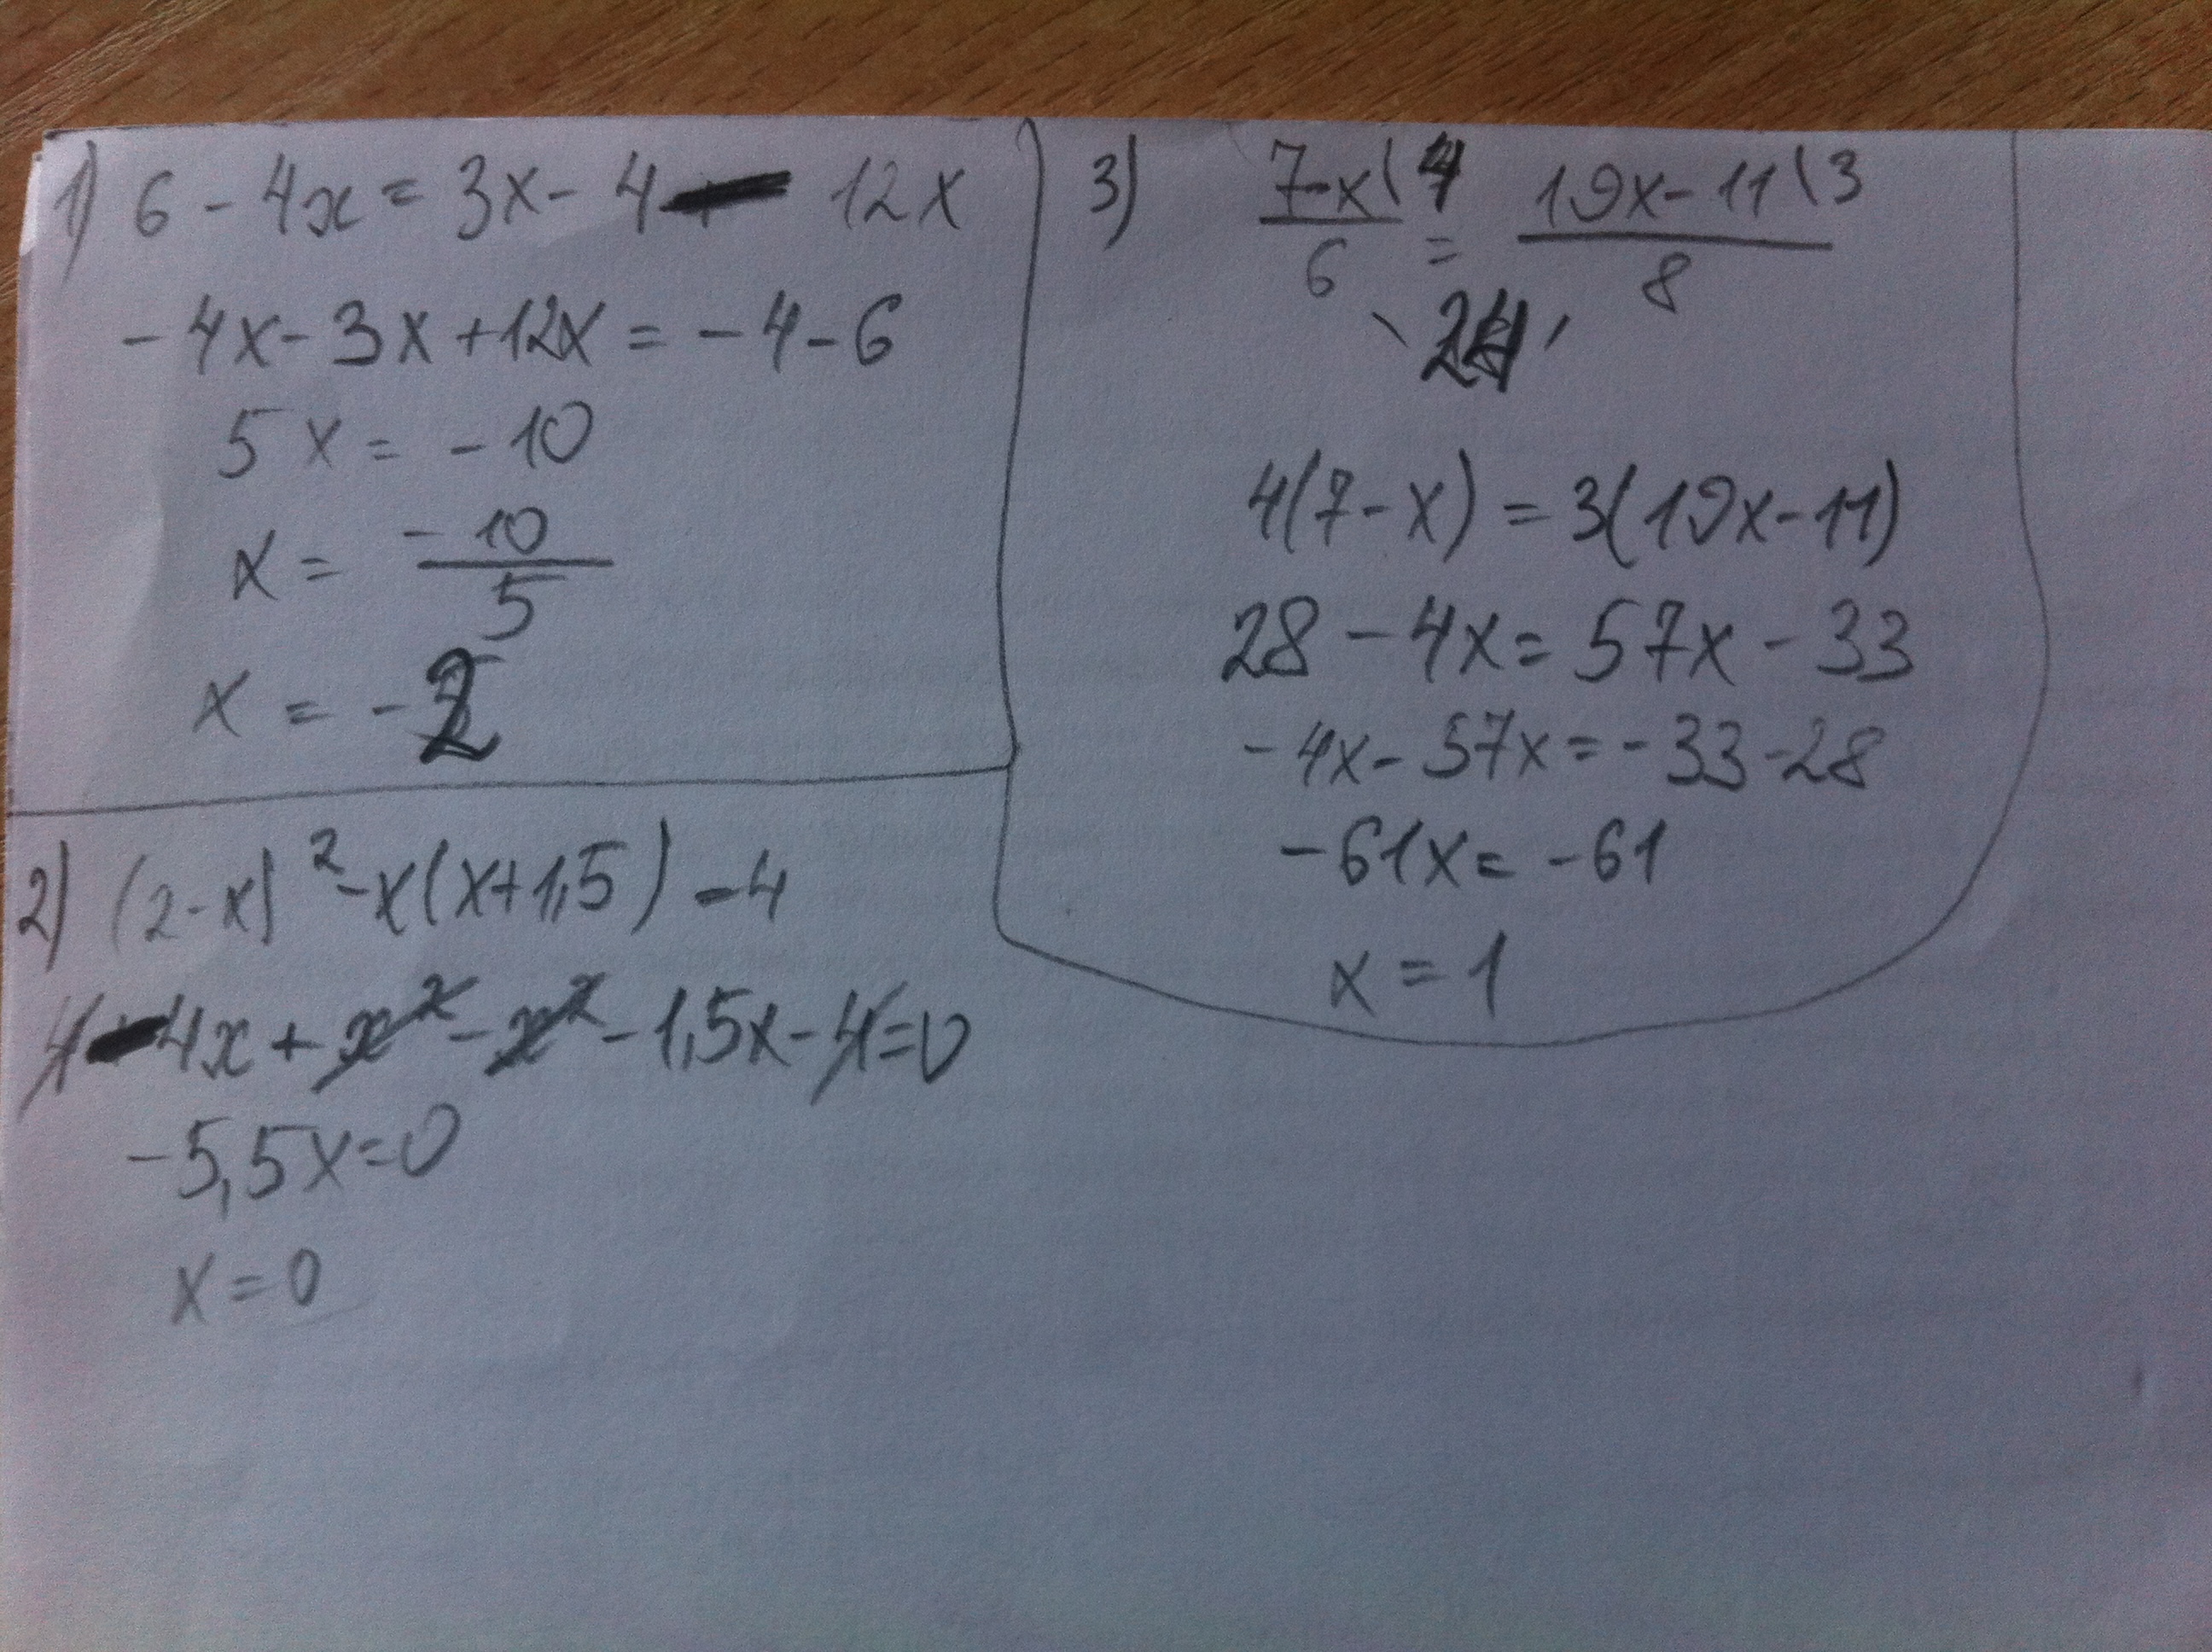 1) 6 - 4x = 3x - 4 - 12x
- 4x - 3x + 12x = - 4 - 6
5x = - 10
x = -10/5
x = - 2
2) (2-x)² - x(x+1,5) - 4
4 - 4x + x² - x² - 1,5x - 4 = 0
- 5,5x = 0
x = 0
3) 7-x\4 / 6 = 19x - 11\3 / 8
\ 24 /
4(7 - x) = 3(19x - 11)
28 - 4x = 57x - 33
- 4x - 57x = - 33 - 28
- 61x = - 61
x = 1